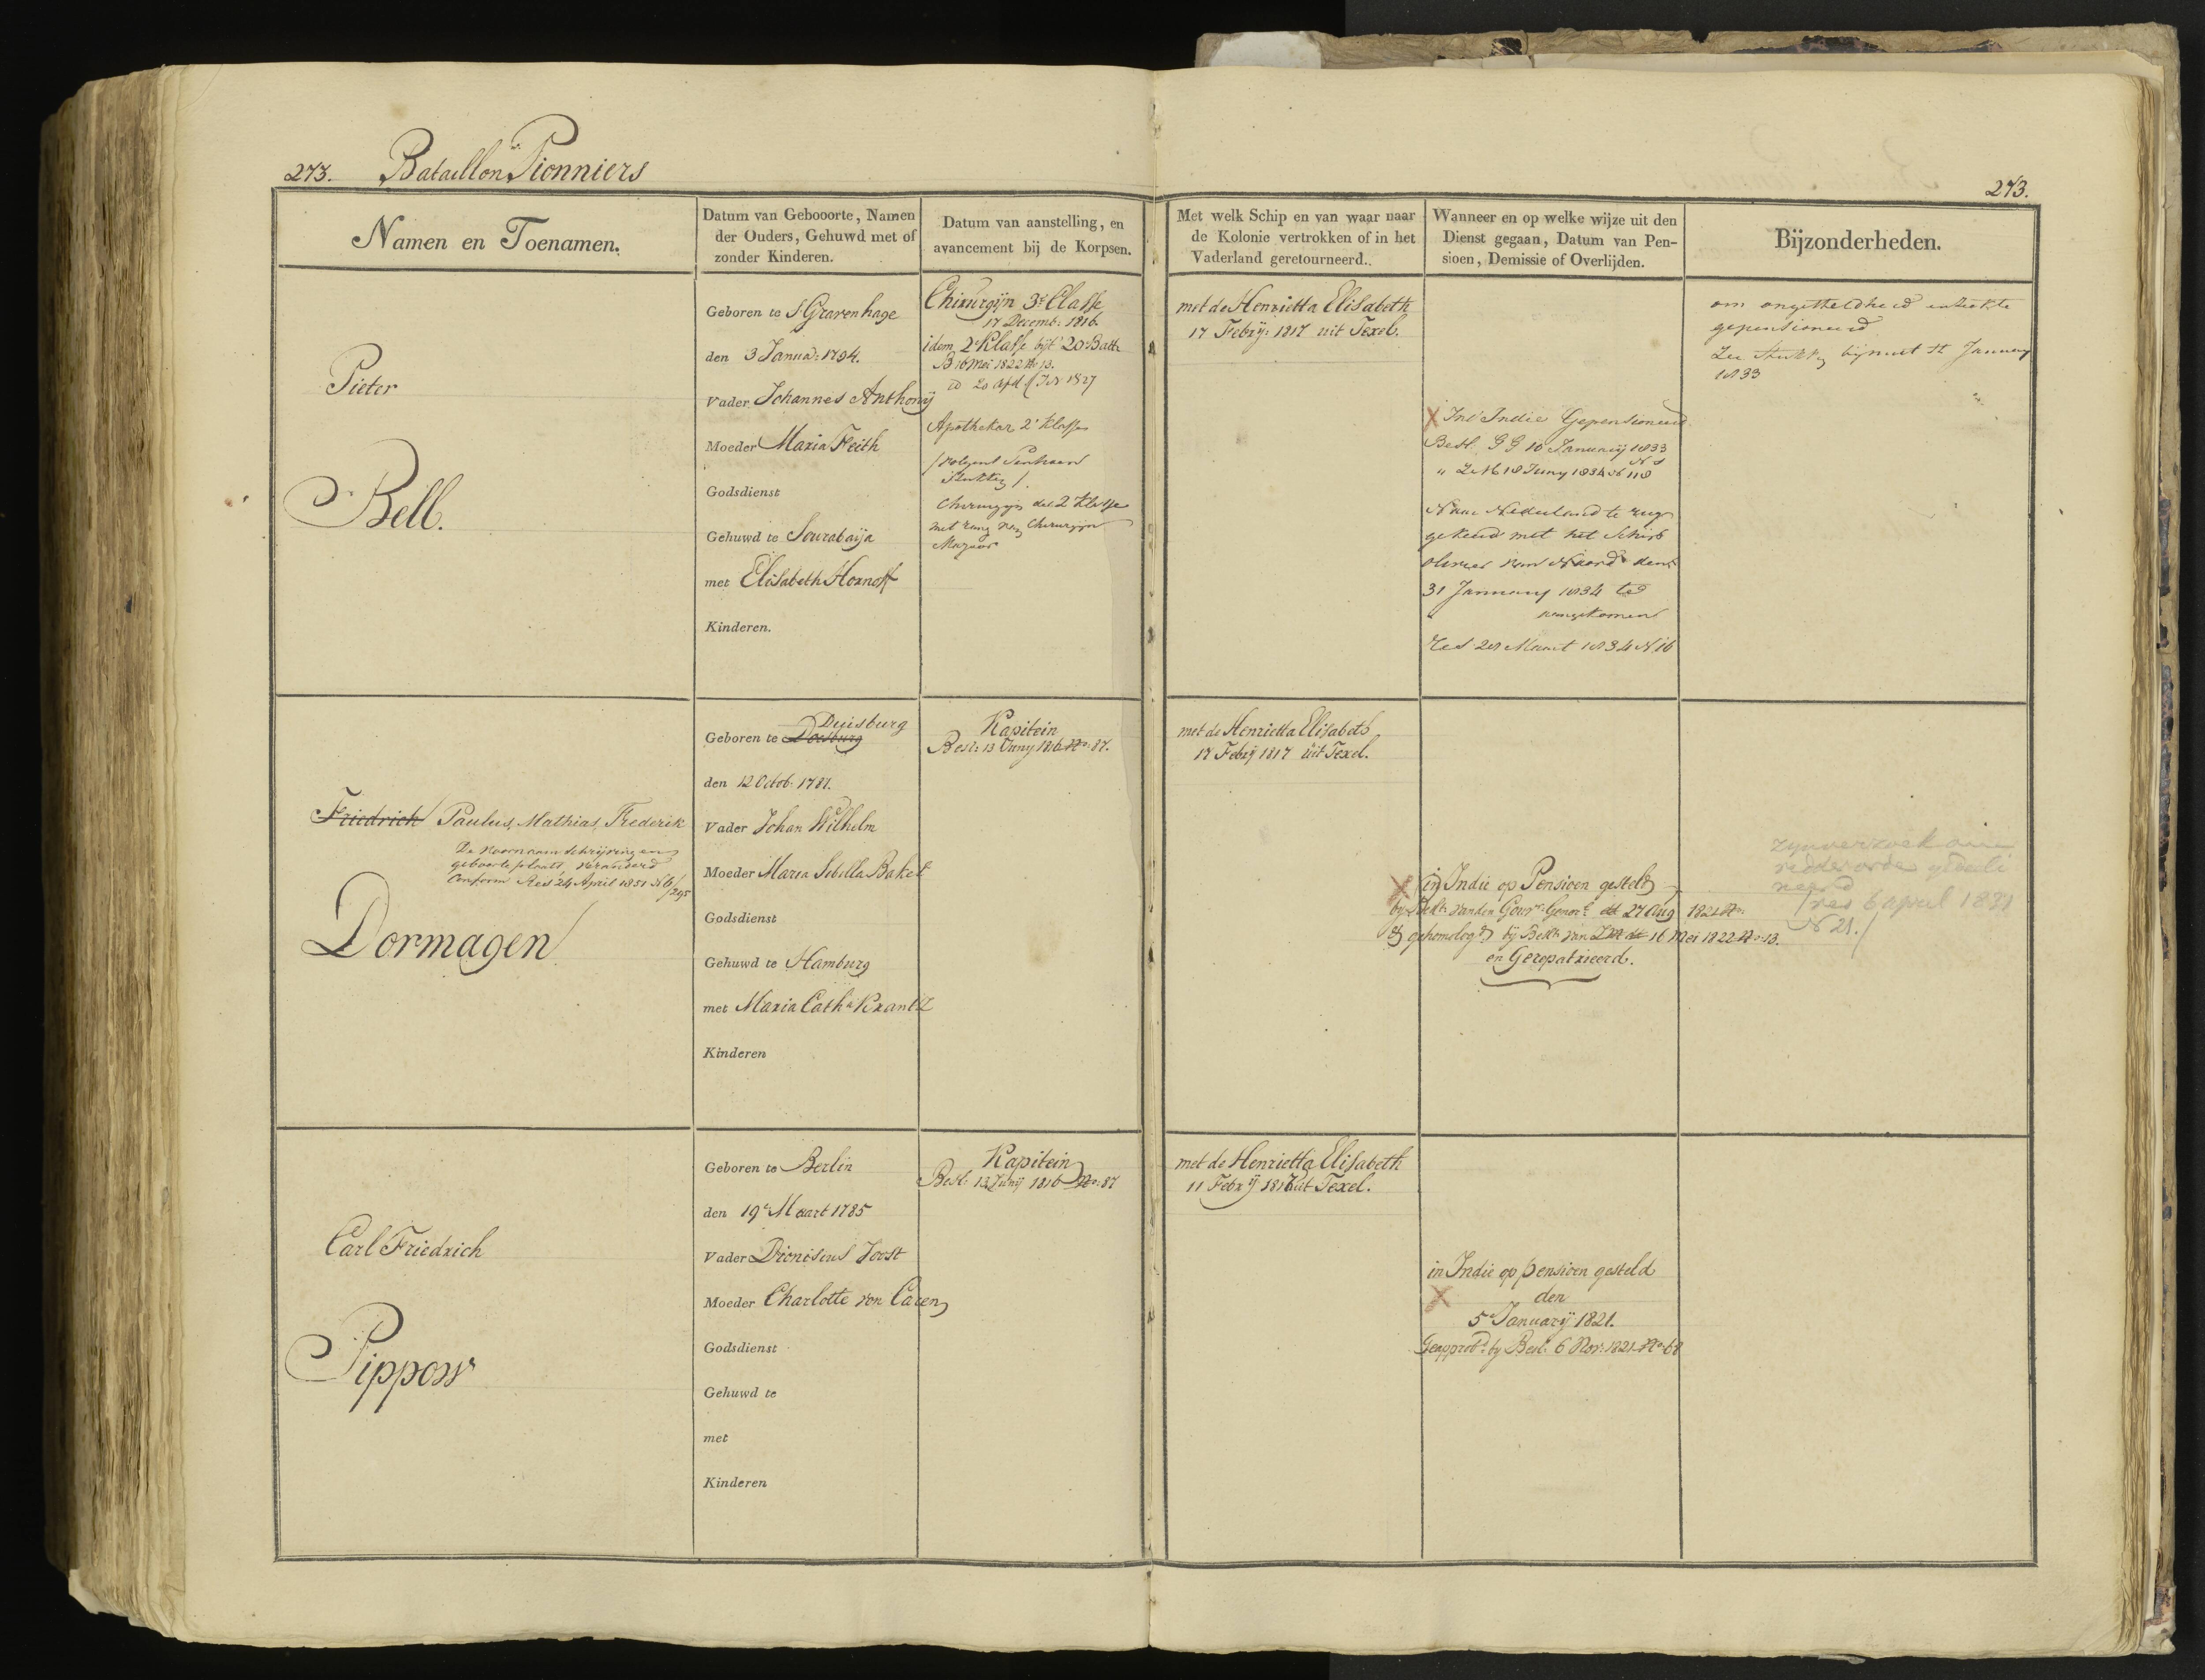 273. Bataillon Pionniers
273.
Namen en Toenamen.
Datum van Gebooorte, Namen
der Ouders, Gehuwd met of
zonder Kinderen.
Datum van aanstelling, en
avancement bij de Korpsen.
Met welk Schip en van waar naar
de Kolonie vertrokken of in het
Vaderland geretourneerd.
Wanneer en op welke wijze uit den
Dienst gegaan, Datum van Pen-
sioen, Demissie of Overlijden.
Bijzonderheden.
Pieter
Bell.
Geboren te S Gravenhage
den 3 Januar: 1794.
Vader Johannes Anthonij
Moeder Maria Feith
Godsdienst
Gehuwd te Sourabaija
met Elisabeth Hornoff
Kinderen.
Chirurgijn 3e Classe
17 Decemb: 1816.
idem 2e Klasse bij't 20 Batt.
B 16 Mei 1822 No 13.
Apothekar 2e Klasse
Chirurgijn der 2 Klasse
met rang van Chirurgijn
Majoor
met de Henrietta Elisabeth
17 Febrij: 1817 uit Texel.
X In Indie Gepensioneerd
Besl. GG 10 January 1833
N 1
" 18 Juny 1834 N 118
Naar Nederland te rug
gekeerd met het Schip
31 January 1834 te
aangekomen
Res 28 Maart 1834 N 16
om ongesteldheid
gepensioneerd
January
1833
Friedrich Paulus, Mathias, Frederik
De voornaam schrijving en
geboorte plaats, veranderd
Conform Res 24 April 1851 N 6/295
Dormagen
Duisburg
Geboren te Doesburg
den 12 Octob: 1781.
Vader Johan Wilhelm
Moeder Maria Sibilla Baket
Godsdienst
Gehuwd te Hamburg
met Maria Catha Krantz
Kinderen
Kapitein
Besl: 13 Juny 1816 No: 87.
met de Henrietta Elisabeth
17 Febrij 1817 uit Texel.
X in Indie op Pensioen gesteld
by Beslt. van den Gouvr. Generl. dd 27 Aug 1821 No.
& gehomologd by Beslt. van 16 Mei 1822 No: 13.
en Gerepatrieerd.
zyn verzoek om
ridderorde
res 6 april 1821
N 21.
Carl Friedrich
Pippow
Geboren te Berlin
den 19e Maart 1785
Vader Dionisius Joost
Moeder Charlotte von Caren
Godsdienst
Gehuwd te
met
Kinderen
Kapitein
Besl: 13 Junij 1816 No: 87
met de Henrietta Elisabeth
11 Febrij 1817 uit Texel.
in Indie op pensioen gesteld
X den
5 Januarij 1821.
Geapprobd. by Besl: 6 Nov: 1821 No: 68